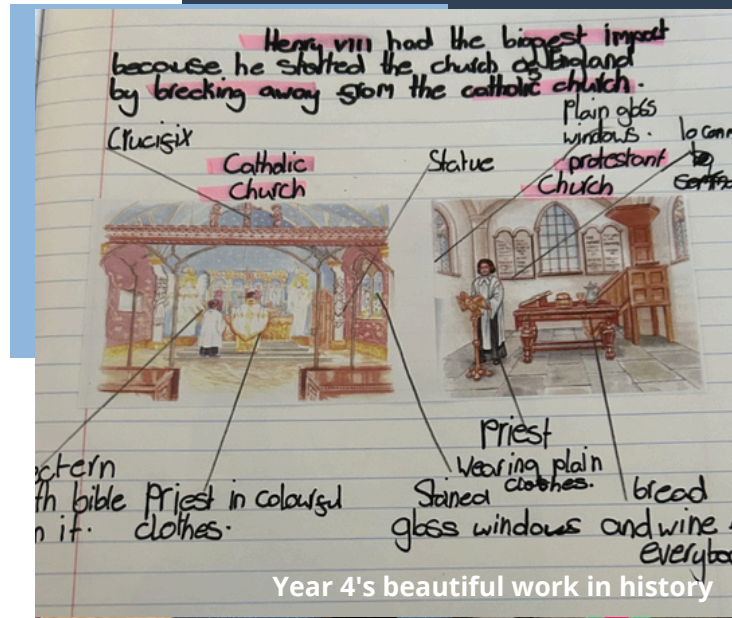 Henry VIII had the biggest impact
because he started the church of England
by breaking away from the catholic church.
Crucifix
Catholic
Church
Statue
plain glass
windows.
protestant
Church
10 Com
priest
wearing plain
clothes.
ctern
th bible
n it.
Priest in colourful
clothes.
Stained
glass windows
bread
and wine
everybo
Year 4's beautiful work in history